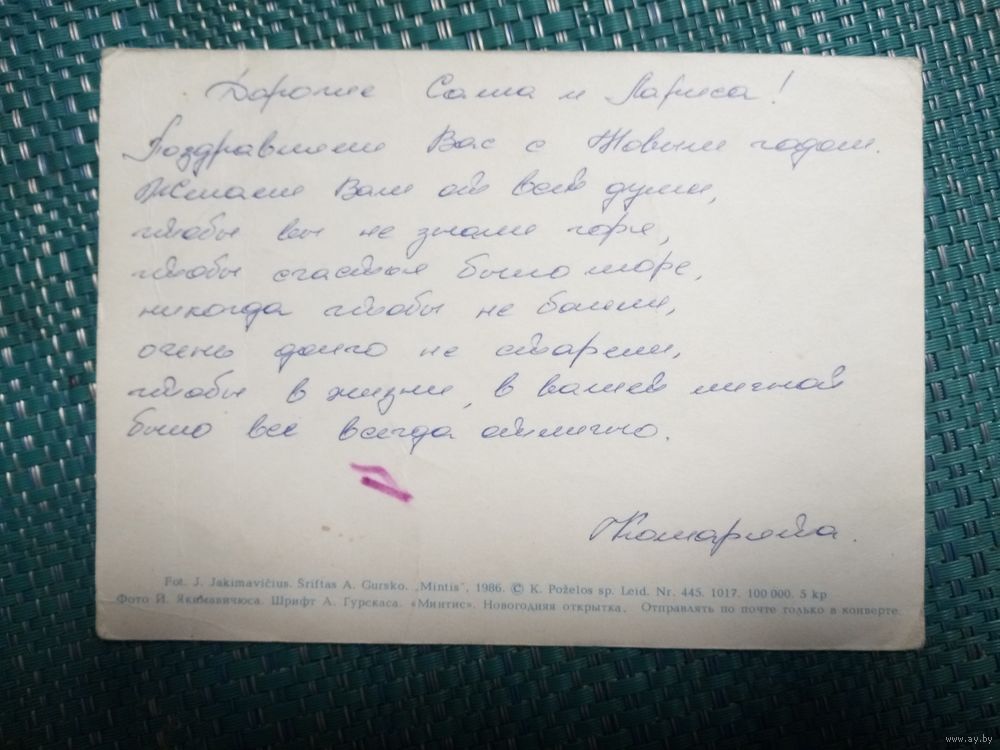 Дорогие Саша и Лариса!
Поздравляем Вас с Новым годом.
Желаем Вам от всей души,
чтобы вы не знали горя,
чтобы счастья было море,
никогда чтобы не болели,
очень долго не старели,
чтобы в жизни, в вашей личной
было все всегда отлично.
Fot. J. Jakimavičius. Šriftas A. Gursko. „Mintis", 1986. © K. Poželos sp. Leid. Nr. 445. 1017. 100 000. 5 kp
Фото Й. Якимавичюса. Шрифт А. Гурскаса. «Минтис». Новогодняя открытка. Отправлять по почте только в конверте.
www.ay.by